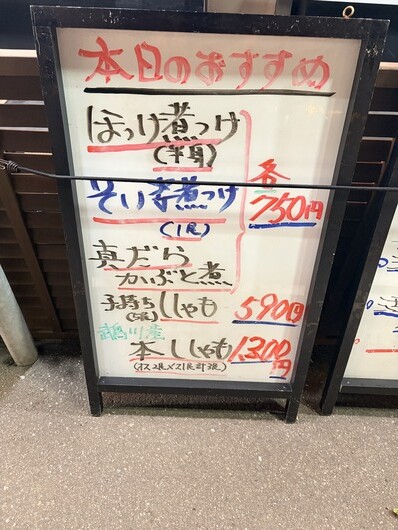 本日のおすすめ
ほっけ煮つけ
(半身)
各
750円
そい煮つけ
(1尾)
真だら
かぶと煮
子持ち ししゃも 590円
鵡川産
本ししゃも 1,300円